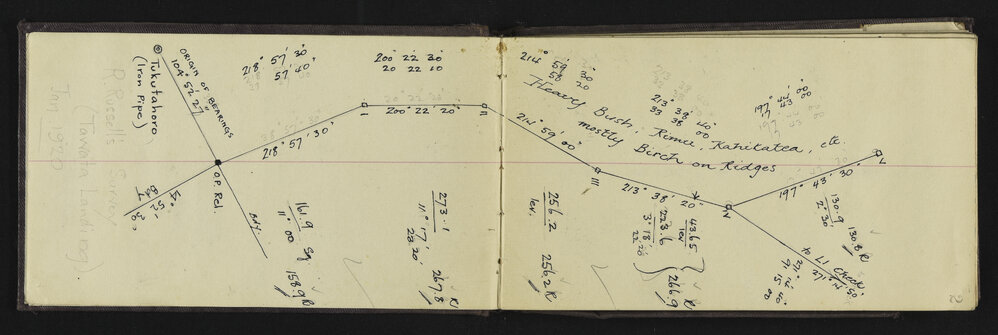 Tukutahoro
(Iron Pipe)
ORIGIN OF BEARINGS
104° 52' 27"
O.P. Rel.
BDY
Bdy
218° 57' 30"
57' 40"
218° 57' 30"
I
200° 22' 30"
20 22 10
200° 22' 20"
II
214° 59' 30"
58 20
214° 59' 00"
III
Heavy Bush; Rimu, Kahikatea, etc.
mostly Birch on Ridges
213° 38' 40"
33 38 00
213° 38' 20"
IV
197° 44' 00"
43 00
197° 43' 30"
V
161.9 Sg
11° 00
158.9 R
273.1
11° 17'
267.8 R
256.2
lev.
256.2 R
43.65
lev
223.6
3° 18'
266.9 R
130.9
2° 30'
130.8 R
to L1 Check
271° 14' 50"
271 14 40
91 15 00
R Russell's Survey
Tawata Landing)
Jny 1920